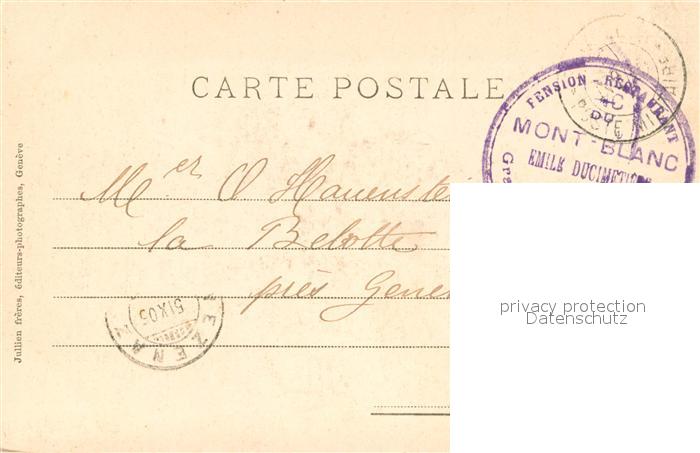 CARTE POSTALE
PENSION-RESTAURANT
DU
MONT-BLANC
EMILE DUCIMETIÈRE
Gr
la Belotte
près Genè
5 IX 05
VEZENAZ
Jullien frères, éditeurs-photographes, Genève
privacy protection
Datenschutz